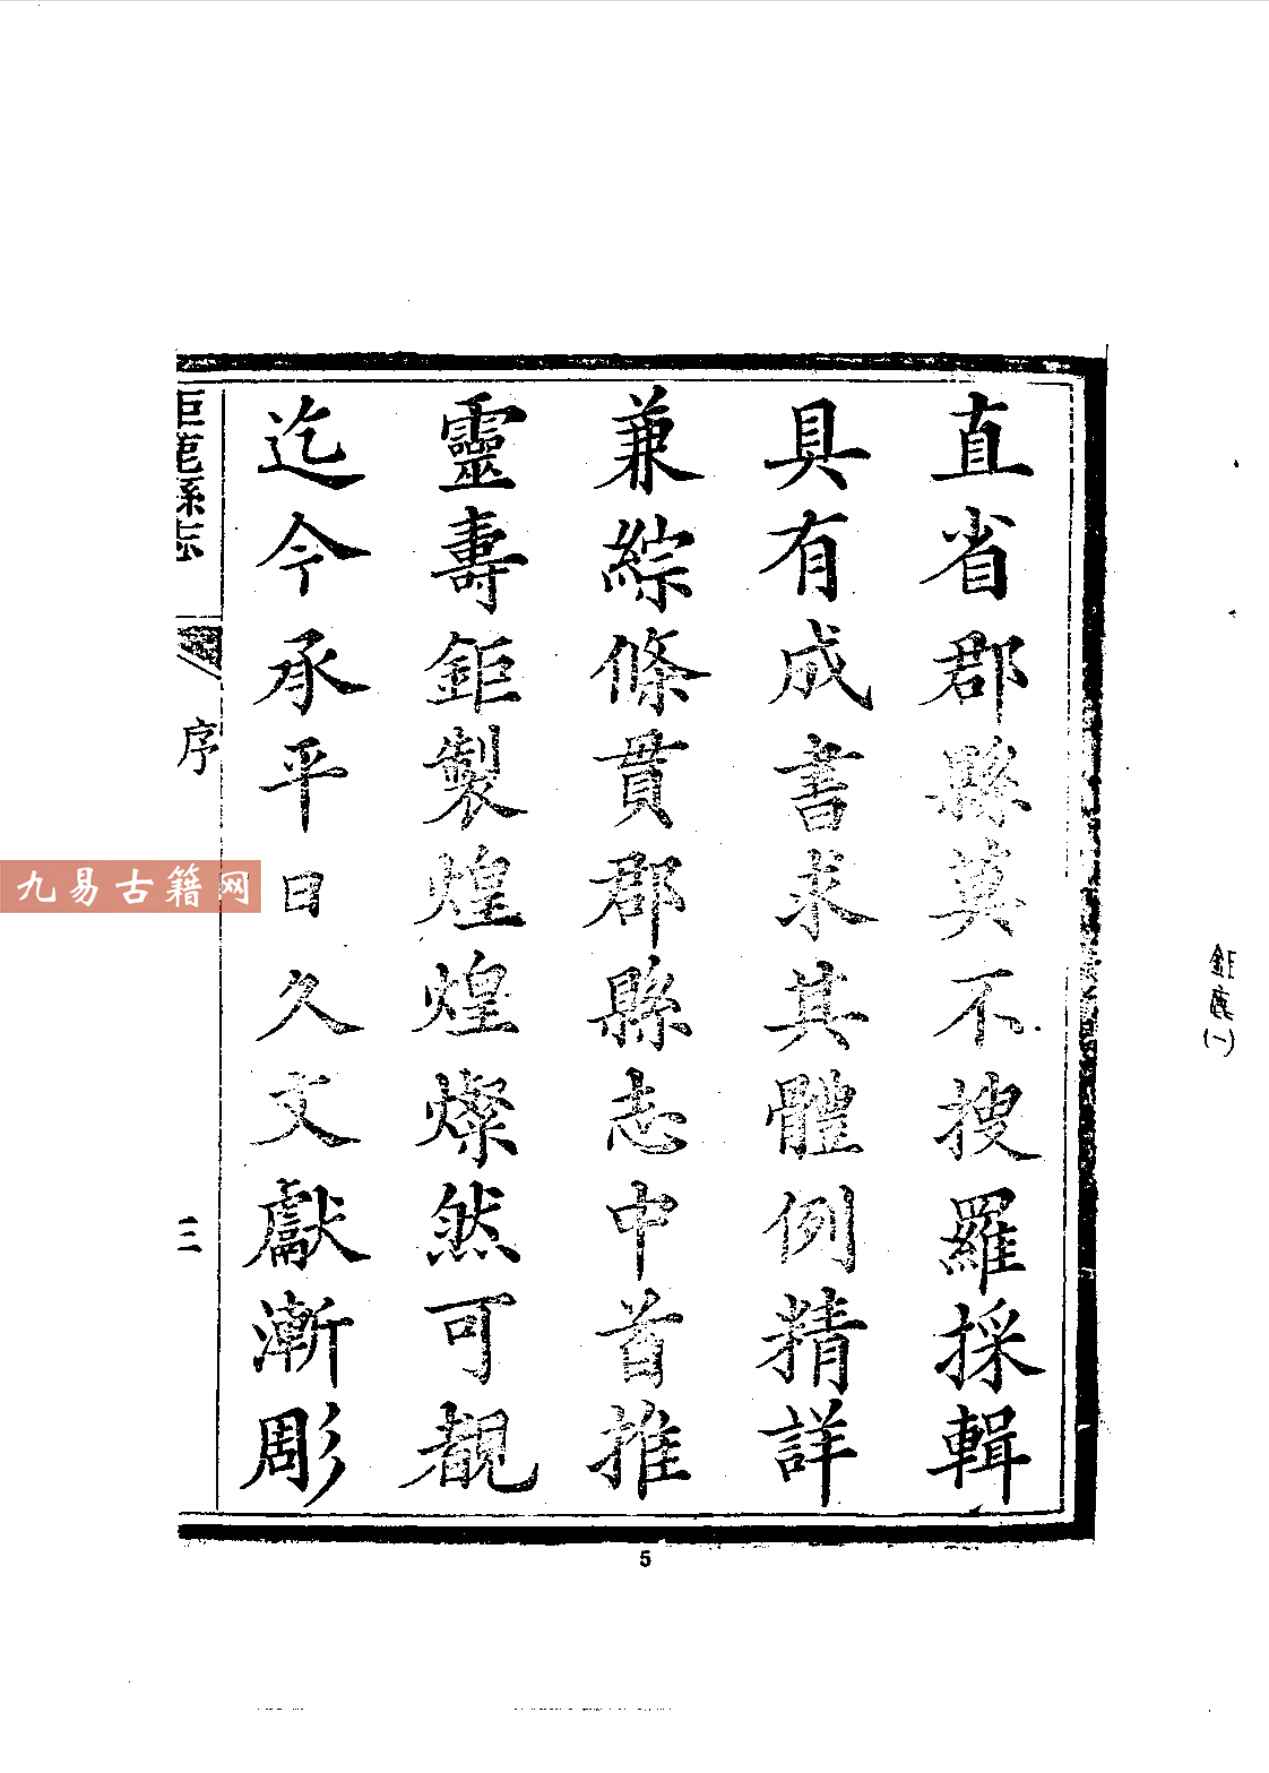 直省郡縣莫不搜羅採輯
具有成書求其體例精詳
兼綜條貫郡縣志中首推
靈壽鉅製煌煌燦然可觀
迄今承平日久文獻漸彫
序
三
5
鉅鹿(一)
九易古籍网